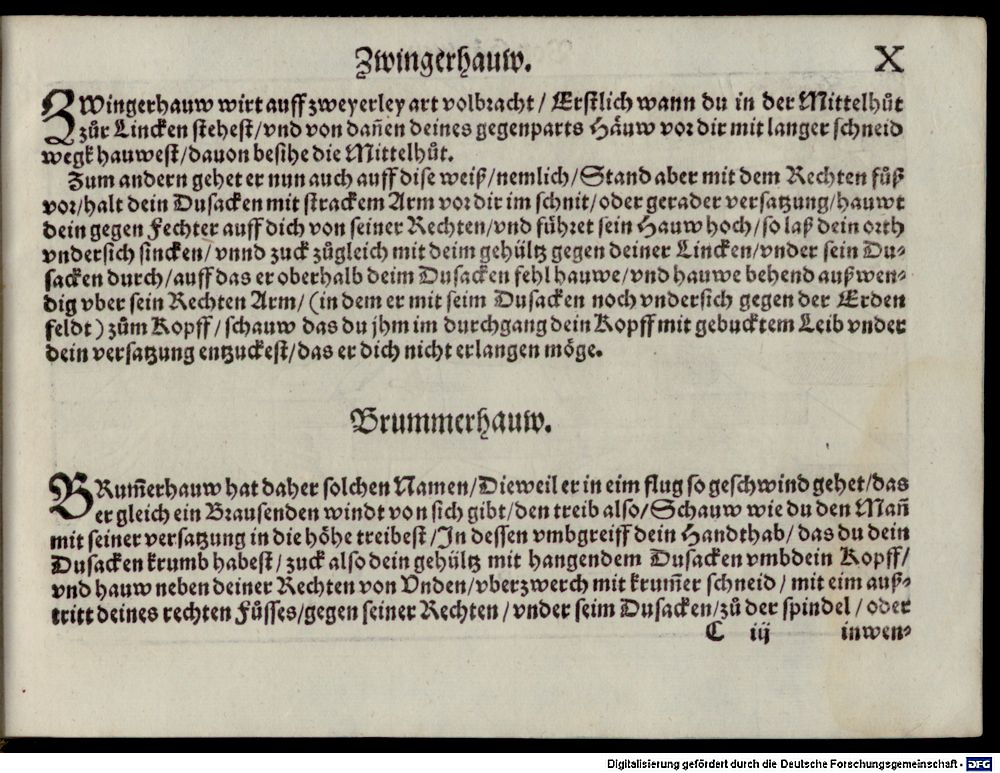 Zwingerhauw. X
ZWingerhauw wirt auff zweyerley art volbracht / Erstlich wann du in der Mittelhůt
zůr Lincken stehest/vnd von dañen deines gegenparts Häuw vor dir mit langer schneid
wegk hauwest/dauon besihe die Mittelhůt.
Zum andern gehet er nun auch auff dise weiß/nemlich/Stand aber mit dem Rechten fůß
vor/halt dein Dusacken mit strackem Arm vor dir im schnit/oder gerader versatzung/hauwt
dein gegen Fechter auff dich von seiner Rechten/vnd führet sein Hauw hoch/so laß dein orth
vndersich sincken/vnnd zuck zůgleich mit deim gehültz gegen deiner Lincken/vnder sein Du-
sacken durch/auff das er oberhalb deim Dusacken fehl hauwe/vnd hauwe behend außwen-
dig vber sein Rechten Arm/(in dem er mit seim Dusacken noch vndersich gegen der Erden
feldt) zům Kopff/schauw das du jhm im durchgang dein Kopff mit gebucktem Leib vnder
dein versatzung entzuckest/das er dich nicht erlangen möge.
Brummerhauw.
BRum̃erhauw hat daher solchen Namen/Dieweil er in eim flug so geschwind gehet/das
er gleich ein Brausenden windt von sich gibt/den treib also/Schauw wie du den Mañ
mit seiner versatzung in die höhe treibest/In dessen vmbgreiff dein Handthab/das du dein
Dusacken krumb habest/zuck also dein gehültz mit hangendem Dusacken vmbdein Kopff/
vnd hauw neben deiner Rechten von Vnden/vberzwerch mit krum̃er schneid/mit eim auß-
tritt deines rechten Fůsses/gegen seiner Rechten/vnder seim Dusacken/zů der spindel/oder
C iij inwen-
Digitalisierung gefördert durch die Deutsche Forschungsgemeinschaft - DFG